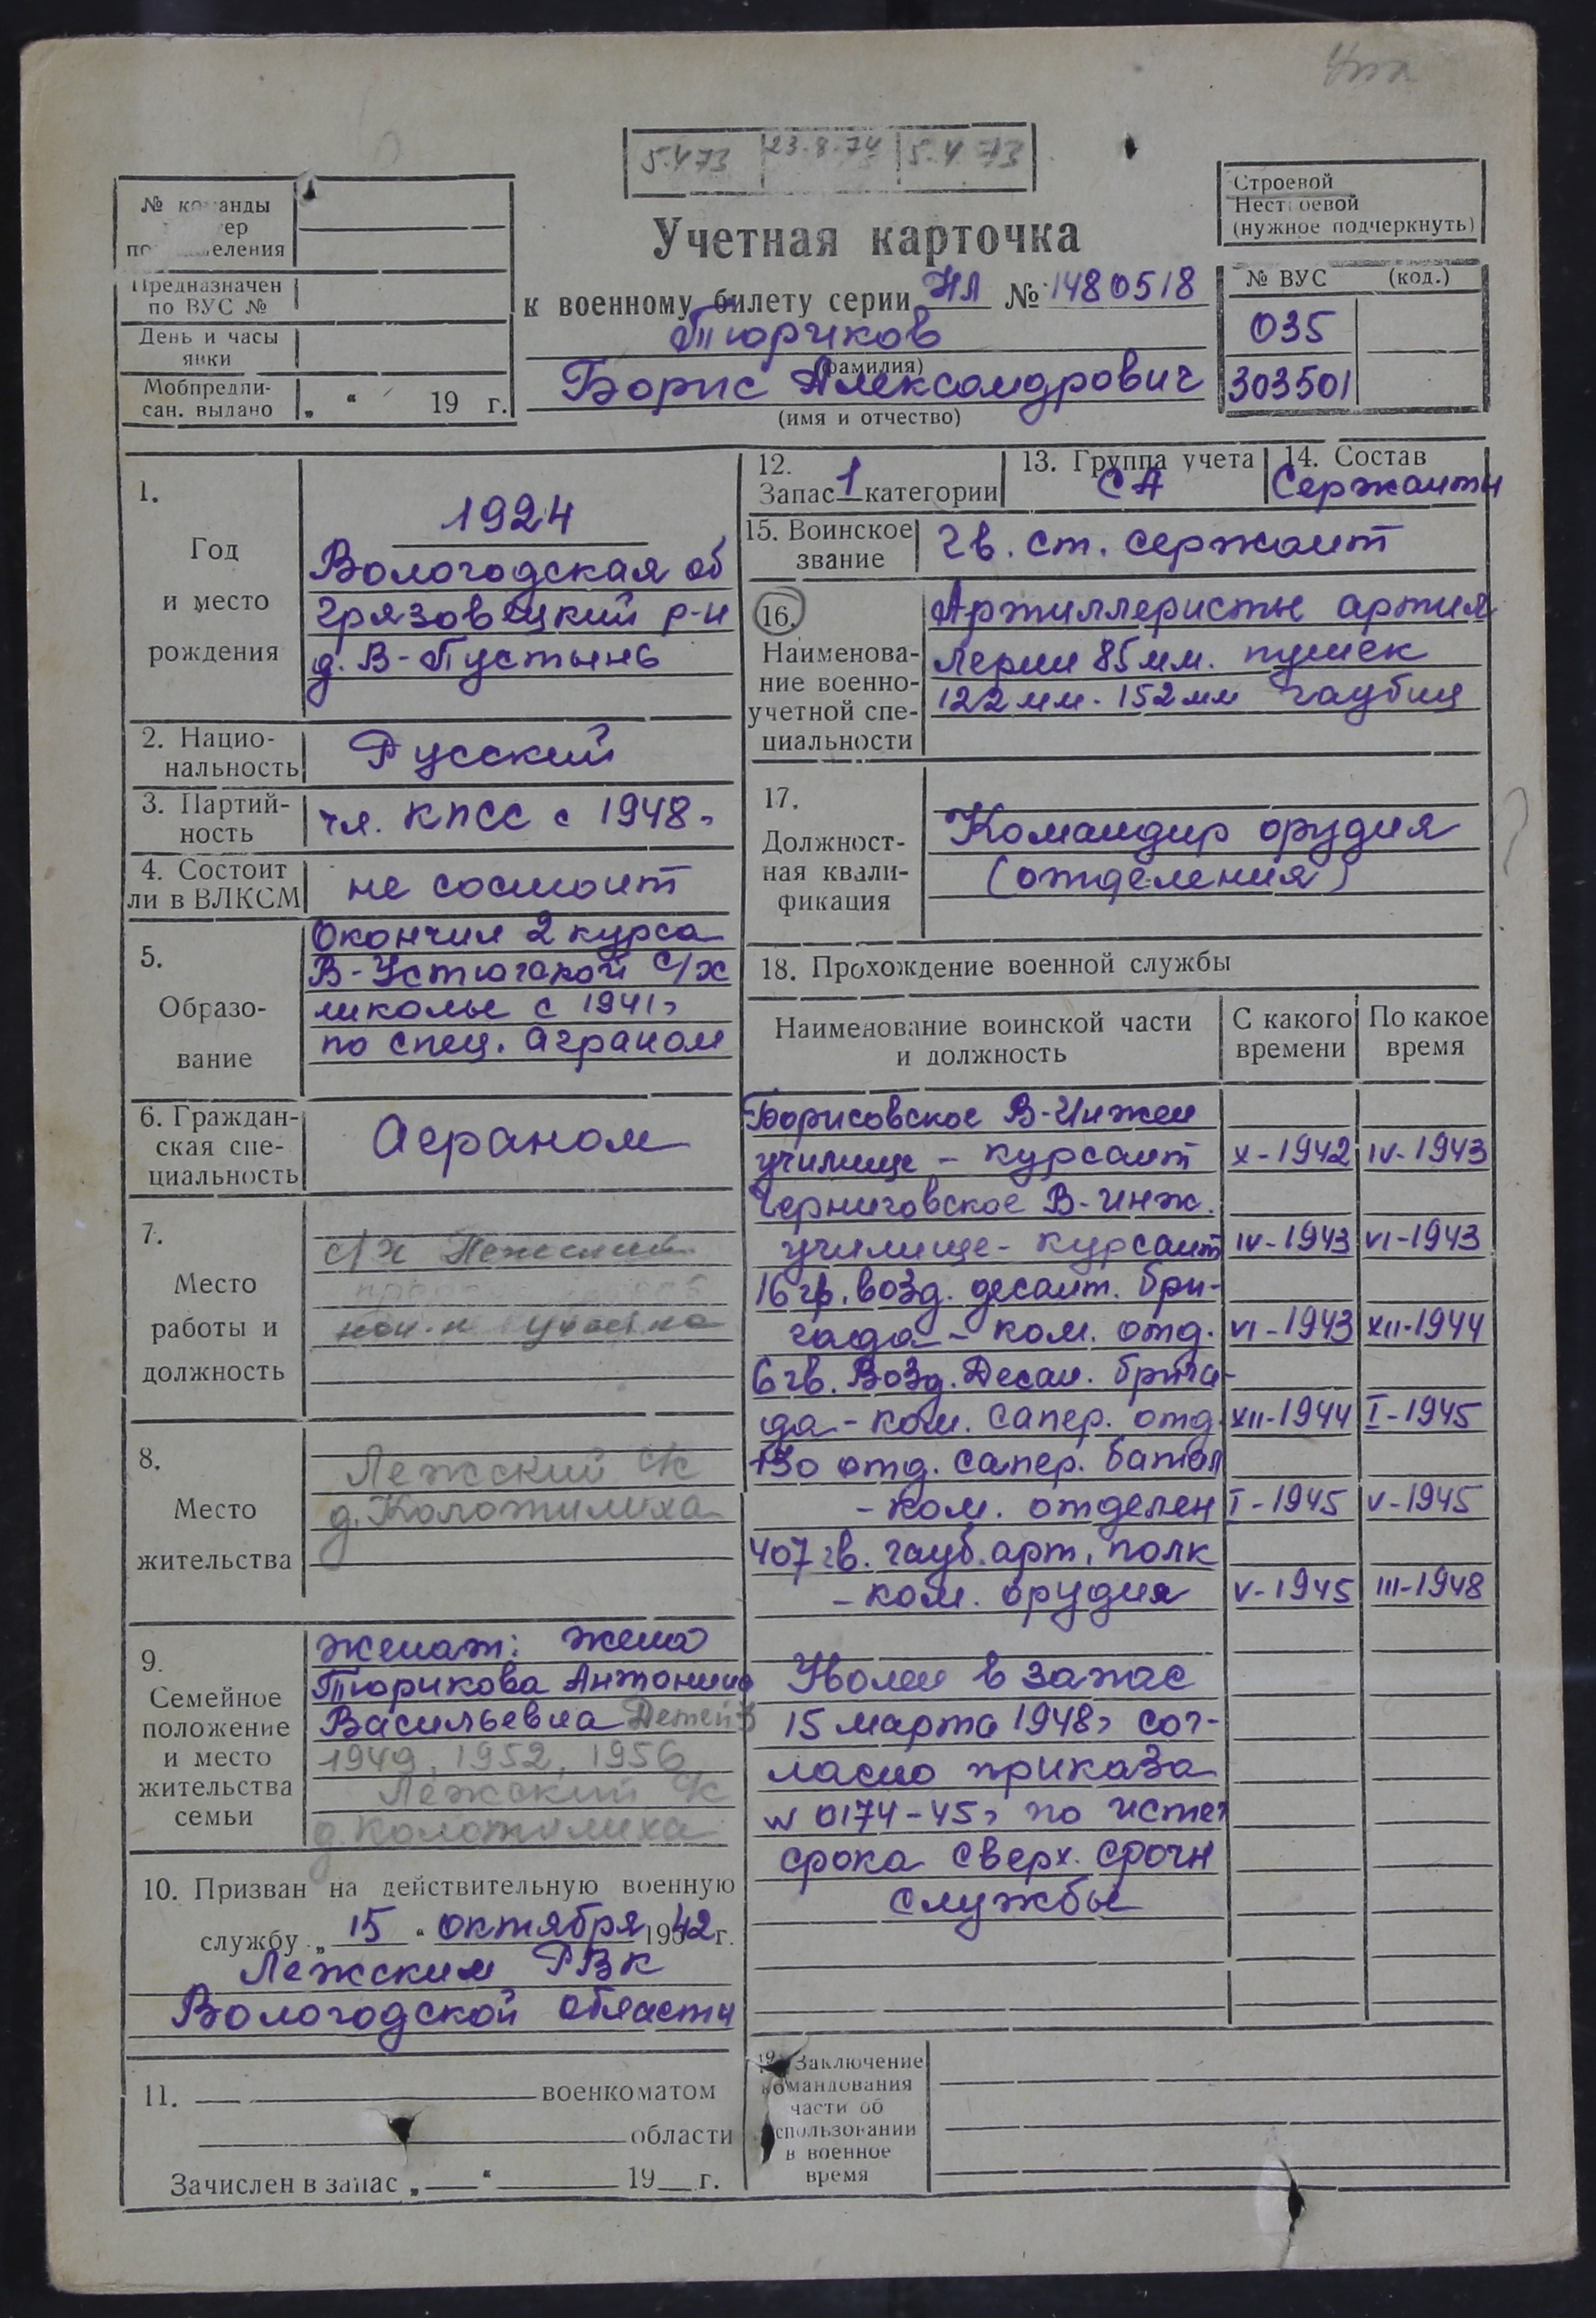 5.4 73 23.8.74 5.4 73
№ команды
по
Предназначен
по ВУС №
День и часы
явки
Мобпредпи-
сан. выдано „ “ 19 г.
Учетная карточка
к военному билету серии НЛ № 1480518
Тюриков
(фамилия)
Борис Александрович
(имя и отчество)
Строевой
Нестроевой
(нужное подчеркнуть)
№ ВУС (код.)
035
303501
1.
Год
и место
рождения
1924
Вологодская об
Грязовецкий р-н
д. В-Пустынь
2. Нацио-
нальность
Русский
3. Партий-
ность
чл. КПСС с 1948г
4. Состоит
ли в ВЛКСМ
не состоит
5.
Образо-
вание
Окончил 2 курса
В-Устюгской с/х
школы с 1941г
по спец. аграном
6. Граждан-
ская спе-
циальность
Аграном
7.
Место
работы и
должность
с/х
нач-к участка
8.
Место
жительства
Лежский с/с
д. Колотилиха
9.
Семейное
положение
и место
жительства
семьи
женат: жена
Тюрикова Антонина
Васильевна Детей 3
1949, 1952, 1956
Лежский с/с
д. Колотилиха
10. Призван на действительную военную
службу „ 15 “ октября 1942 г.
Лежским РВК
Вологодской области
11. военкоматом
области
Зачислен в запас „ “ 19 г.
12.
Запас 1 категории
13. Группа учета
СА
14. Состав
Сержанты
15. Воинское
звание
гв. ст. сержант
16.
Наименова-
ние военно-
учетной спе-
циальности
Артиллеристы артил
лерии 85 мм. пушек
122 мм. 152 мм гаубиц
17.
Должност-
ная квали-
фикация
Командир орудия
(отделения)
18. Прохождение военной службы
Наименование воинской части
и должность
С какого
времени
По какое
время
Борисовское В-Инжен
училище - курсант X-1942 IV-1943
Черниговское В-инж.
училище - курсант IV-1943 VI-1943
16 гв. возд. десант. бри-
гада - ком. отд. VI-1943 XII-1944
6 гв. Возд. Десан. брига-
да - ком. сапер. отд. XII-1944 I-1945
130 отд. сапер. батал
- ком. отделен I-1945 V-1945
407 гв. гауб. арт. полк
- ком. орудия V-1945 III-1948
Уволен в запас
15 марта 1948г сог-
ласно приказа
N 0174-45г по истеч
срока сверх. срочн
службы
19. Заключение
командования
части об
использовании
в военное
время